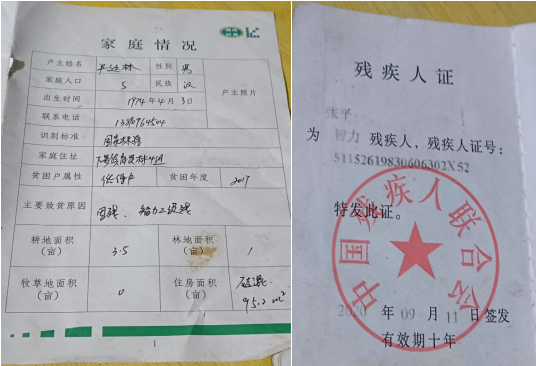 家庭情况
户主姓名 性别 男
家庭人口 5 民族 汉 户主照片
出生时间 1974年4月3日
联系电话
识别标准 国家标准
家庭住址
贫困户属性 低保户 贫困年度 2017
主要致贫原因 因残、智力2级残
耕地面积（亩） 3.5 林地面积（亩） 1
牧草地面积（亩） 0 住房面积（亩） 砖混 95.2m²
1
残疾人证
张平
为 智力 残疾人，残疾人证号：
51152619830606302X52
特发此证。
中国残疾人联合会
2020 年 09 月 11 日签发
有效期十年